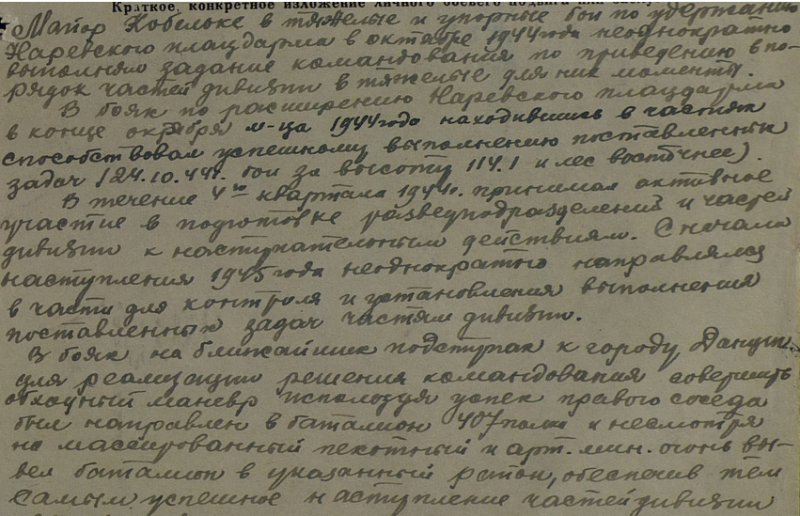 Краткое, конкретное изложение личного боевого подвига или заслуг
Майор Кобельке в тяжелые и упорные бои по удержанию
Наревского плацдарма в октябре 1944 года неоднократно
выполнял задание командования по приведению в по-
рядок частей дивизии в тяжелые для них моменты.
В боях по расширению Наревского плацдарма
в конце октября м-ца 1944 года находившись в частях
способствовал успешному выполнению поставленных
задач (24.10.44г. бои за высоту 114.1 и лес восточнее).
В течение 4го квартала 1944г. принимал активное
участие в подготовке разведподразделений и частей
дивизии к наступательным действиям. С начала
наступления 1945 года неоднократно направлялся
в части для контроля и установления выполнения
поставленных задач частям дивизии.
В боях на ближайших подступах к городу Данциг
для реализации решения командования совершить
обходный маневр используя успех правого соседа
был направлен в баталион 407 полка и несмотря
на массированный пехотный и арт. мин. огонь вы-
вел баталион в указанный район, обеспечив тем
самым успешное наступление частей дивизии